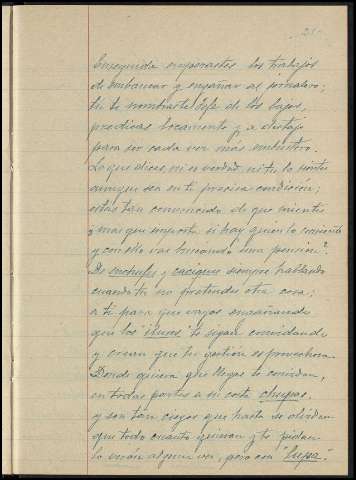 21
Enseguida empezastes los trabajos
de embaucar y engañar al forastero;
tú te nombraste Jefe de los bajos,
predicas locamente y a destajo
para ser cada vez más embustero.
Lo que dices, ni es verdad, ni tú lo sientes
aunque sea en tu precisa condición;
estás tan convencido de que mientes
mas que importa si hay quien lo consiente
y con ello vas buscando una pensión?
De enchufes y caciques siempre hablando
cuando tú no pretendes otra cosa;
a ti para que vayas engañando
que los "itures" te sigan convidando
y crean que tu gestión es provechosa.
Donde quiera que llegas te convidan,
en todas partes a su costa chupas.
y son tan ciegos que hasta se olvidan
que todo cuanto quieran y te pidan
lo verán alguna vez, pero con "lupa".